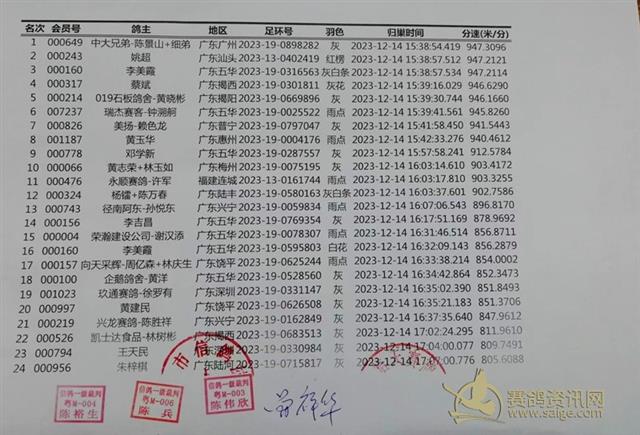 名次 会员号 鸽主 地区 足环号 羽色 归巢时间 分速(米/分)
1 000649 中大兄弟-陈景山+细弟 广东广州 2023-19-0898282 灰 2023-12-14 15:38:54.419 947.3096
2 000243 姚超 广东汕头 2023-13-0402419 红楞 2023-12-14 15:38:57.512 947.2121
3 000160 李美霞 广东五华 2023-19-0316563 灰白条 2023-12-14 15:38:57.534 947.2114
4 000317 蔡斌 广东揭西 2023-19-0301811 灰花 2023-12-14 15:39:16.029 946.6290
5 000214 019石板鸽舍-黄晓彬 广东揭阳 2023-19-0669896 灰 2023-12-14 15:39:30.744 946.1660
6 007237 瑞杰赛客-钟溯舸 广东五华 2023-19-0225528 雨点 2023-12-14 15:39:41.561 945.8260
7 000826 美扬-赖色龙 广东普宁 2023-19-0797047 灰 2023-12-14 15:41:58.450 941.5443
8 001187 黄玉华 广东惠州 2023-19-0004176 雨点 2023-12-14 15:42:33.276 940.4612
9 000778 邓学新 广东五华 2023-19-0287557 灰 2023-12-14 15:57:58.241 912.5784
10 000066 黄志荣+林玉如 广东梅州 2023-19-0075195 灰 2023-12-14 16:03:14.610 903.4172
11 000476 永顺赛鸽-许军 福建连城 2023-13-0161744 雨点 2023-12-14 16:03:17.810 903.3255
12 000324 杨镭+陈万春 广东陆丰 2023-19-0580163 灰白条 2023-12-14 16:03:37.601 902.7586
13 000743 径南阿东-孙悦东 广东兴宁 2023-19-0059834 雨点 2023-12-14 16:07:06.543 896.8170
14 000156 李吉昌 广东五华 2023-19-0769354 灰 2023-12-14 16:17:51.169 878.9692
15 000004 荣瀚建设公司-谢汉添 广东五华 2023-19-0078307 雨点 2023-12-14 16:31:46.514 856.8711
16 000160 李美霞 广东五华 2023-19-0595803 白花 2023-12-14 16:32:09.143 856.2879
17 000157 向天采辉-周亿森+林庆生 广东饶平 2023-19-0625244 雨点 2023-12-14 16:33:38.214 854.0002
18 000100 企鹅鸽舍-黄洋 广东五华 2023-19-0528560 灰 2023-12-14 16:34:42.864 852.3473
19 001023 玖通赛鸽-徐罗有 广东深圳 2023-19-0331147 灰 2023-12-14 16:35:02.390 851.8493
20 000997 黄建民 广东饶平 2023-19-0626508 灰 2023-12-14 16:35:21.183 851.3706
21 000219 兴龙赛鸽-陈胜祥 广东兴宁 2023-19-0162849 灰 2023-12-14 16:37:35.640 847.9612
22 000526 凯士达食品-林树彬 广东揭西 2023-19-0683513 灰 2023-12-14 17:02:24.295 811.9610
23 000794 王天民 广东深圳 2023-19-0330984 灰 2023-12-14 17:04:00.077 809.7491
24 000956 朱梓祺 广东陆河 2023-19-0715817 灰 2023-12-14 17:07:00.776 805.6088
市信鸽
信鸽一级裁判
粤M-004
陈裕生
信鸽一级裁判
粤M-006
陈兵
信鸽一级裁判
粤M-003
陈伟欣
赛鸽资讯网
www.saige.com